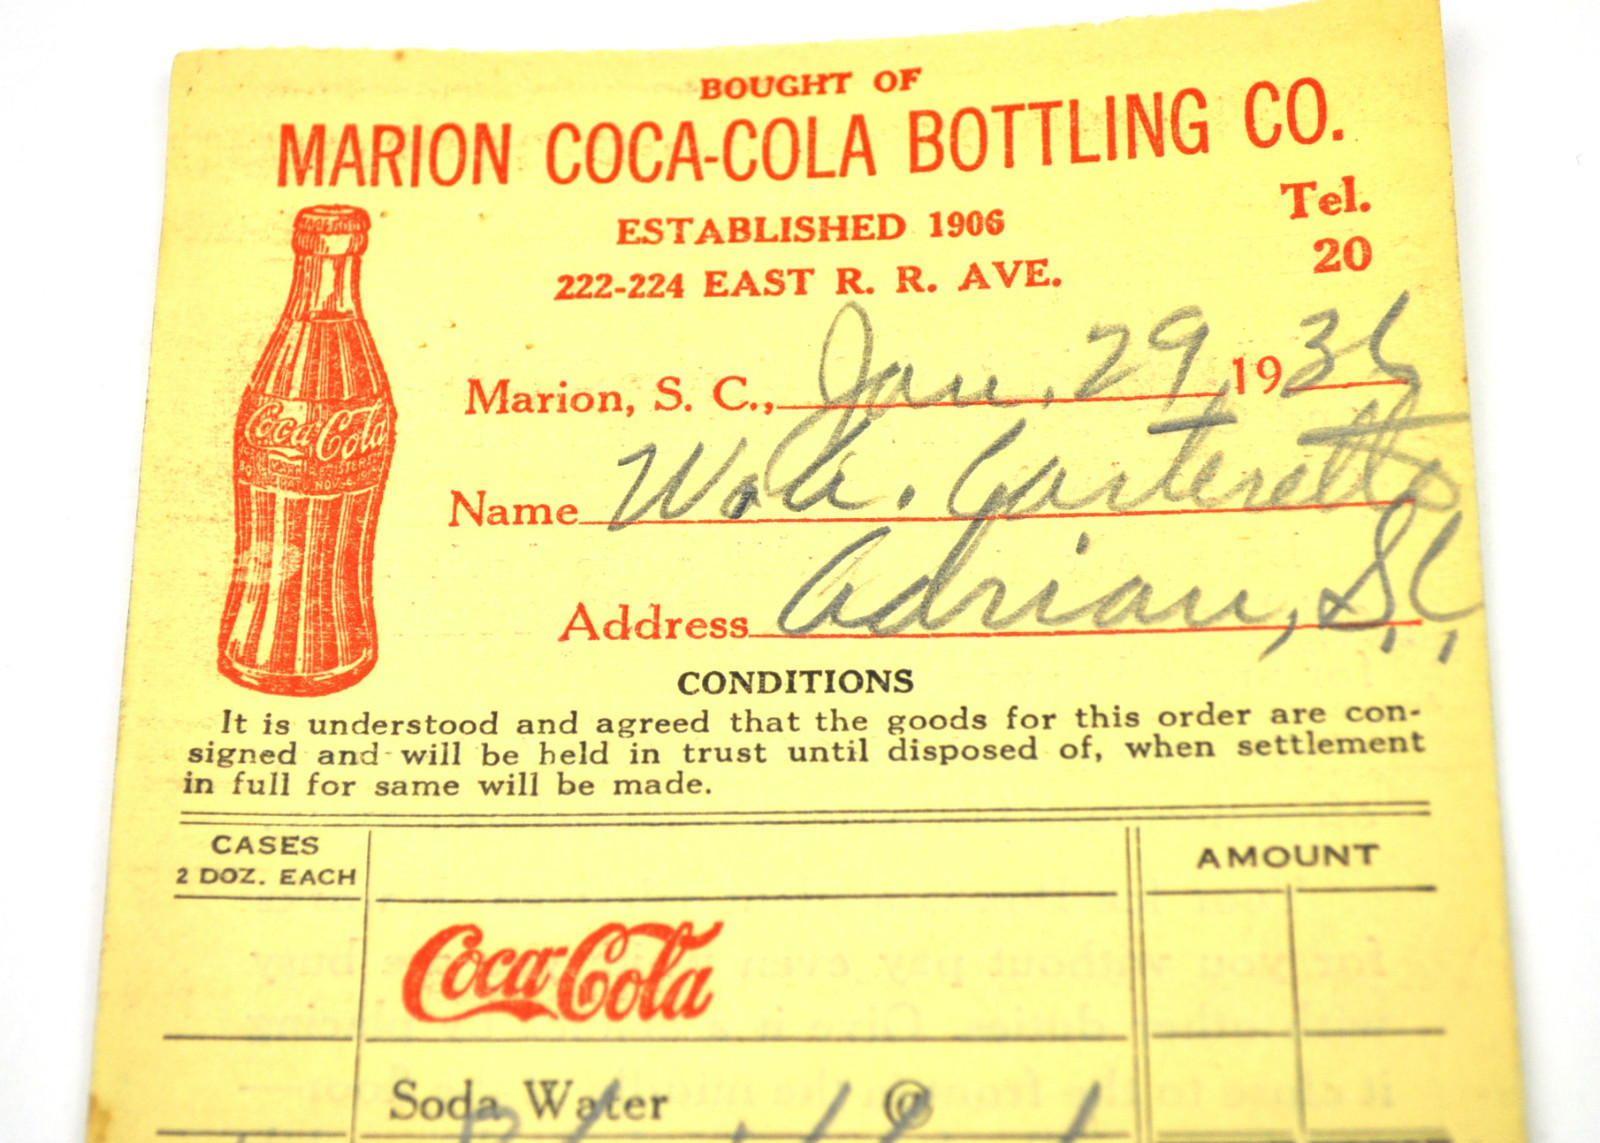 BOUGHT OF
MARION COCA-COLA BOTTLING CO.
ESTABLISHED 1906
Tel.
20
222-224 EAST R. R. AVE.
Marion, S. C., Jan. 29, 1936
Name
Address Adrian, S.C.,
Coca-Cola
CONDITIONS
It is understood and agreed that the goods for this order are con-
signed and will be held in trust until disposed of, when settlement
in full for same will be made.
CASES
2 DOZ. EACH
AMOUNT
Coca-Cola
Soda Water @